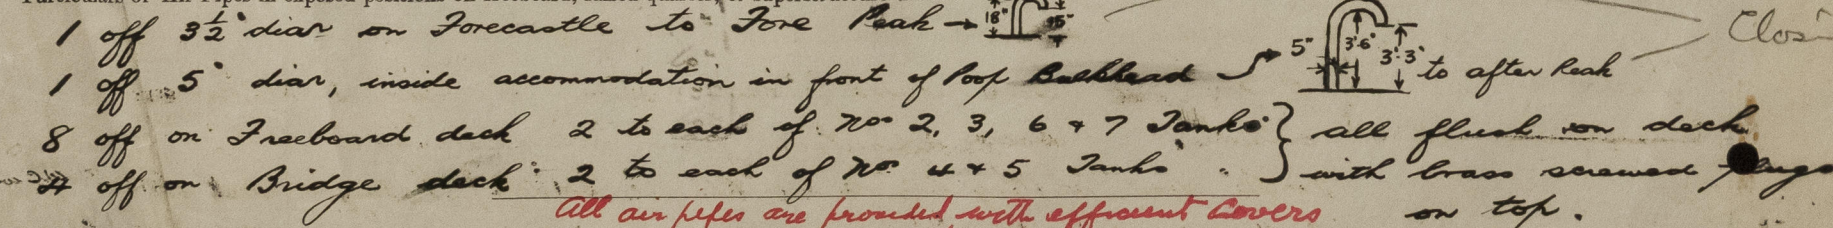 1 off 3½" diar on Forecastle to Fore Peak → 18" 15"
1 off 5" diar, inside accommodation in front of Poop Bulkhead → 5" 3'6" 3'·3" to after Peak
8 off on Freeboard deck 2 to each of Nos 2, 3, 6 & 7 Tanks } all flush on deck
4 off on Bridge deck 2 to each of No. 4 & 5 Tanks } with brass screwed plugs
All air pipes are provided with efficient Covers on top.